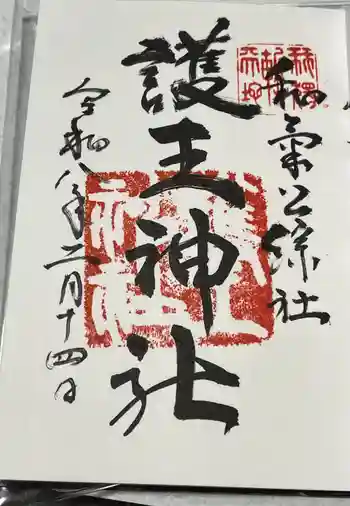 和氣公綜社
護王神社
令和八年二月十四日
護王神社